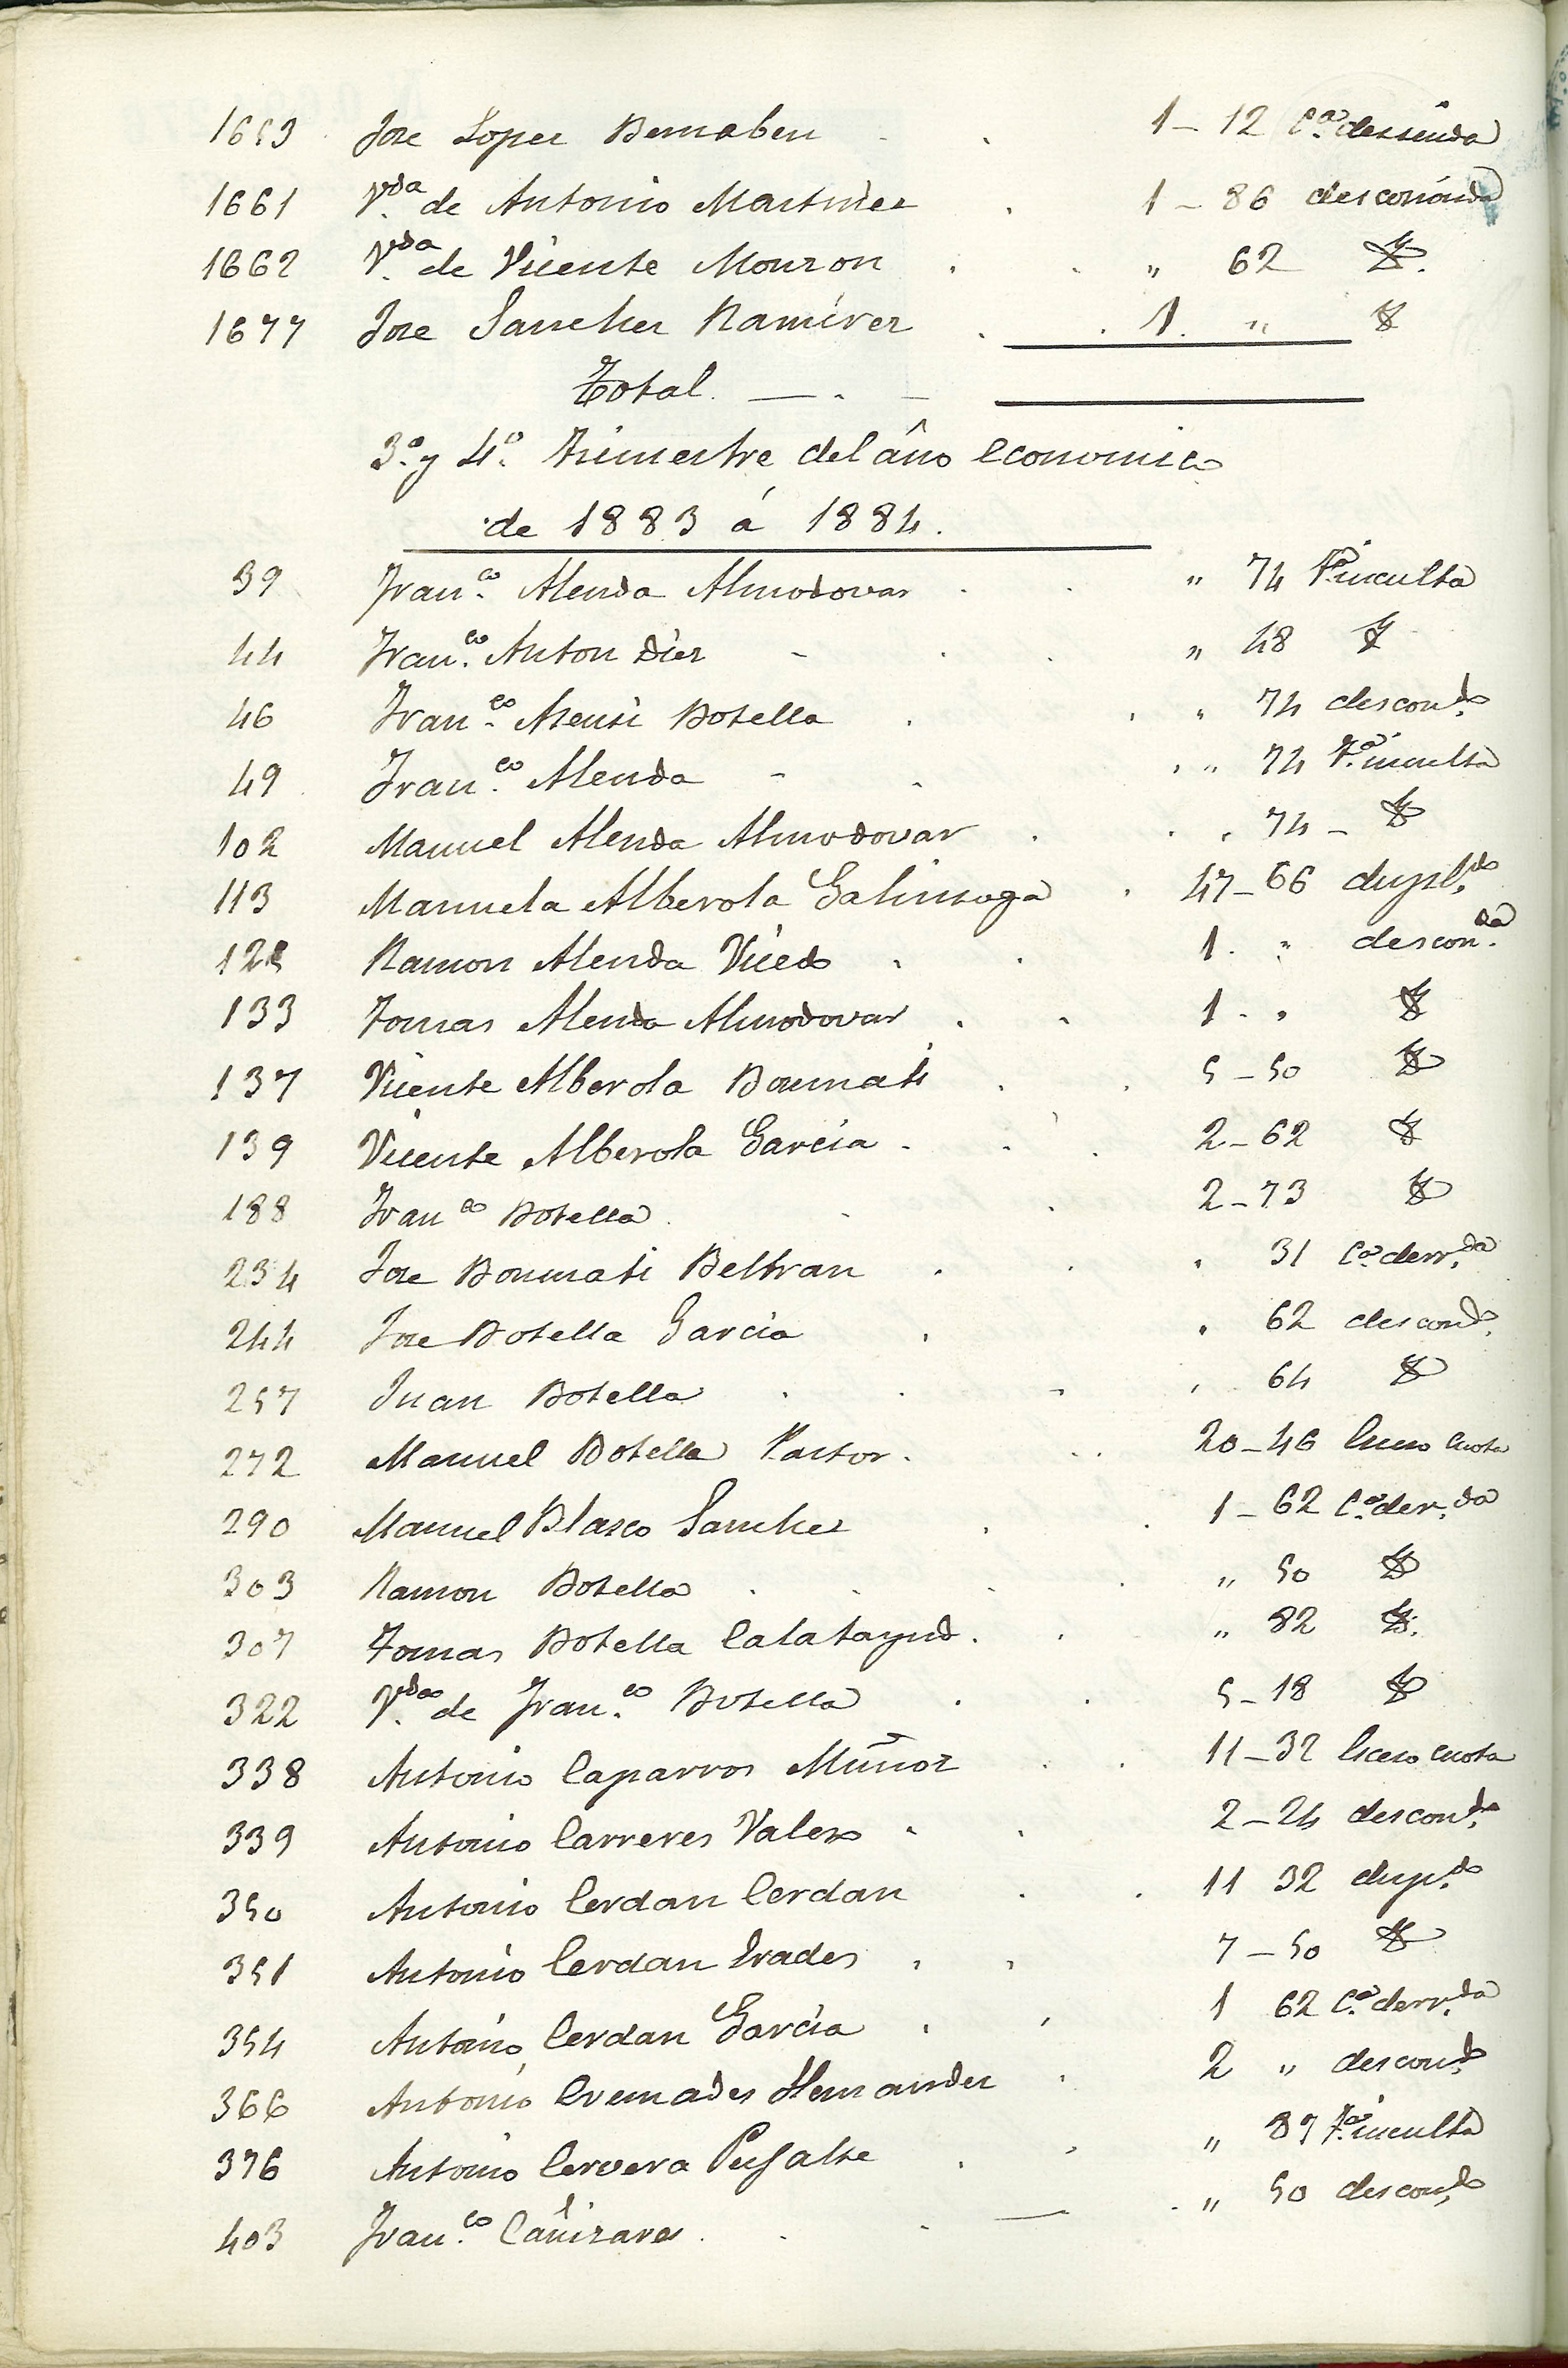 1653 Jose Lopez Bernabeu 1-12 C.ª derruida
1661 V.da de Antonio Martinez 1-86 desconocida
1662 V.da de Vicente Monzon " 62
1677 Jose Sanchez Ramirez 1. "
Total.
3.º y 4.º Trimestre del año economico
de 1883 á 1884.
39 Fran.co Alenda Almodovar " 74 T.ª inculta
44 Fran.co Anton Diez " 48
46 Fran.co Asensi Botella " 74 descon.do
49 Fran.co Alenda " 74 T.ª inculta
102 Manuel Alenda Almodovar " 74
113 Manuela Alberola Galinsoga 47-66 dupl.do
128 Ramon Alenda Vicedo 1. " descon.da
133 Tomas Alenda Almodovar 1. "
137 Vicente Alberola Boumati 5-50
139 Vicente Alberola Garcia 2-62
188 Fran.co Botella 2-73
234 Jose Boumati Beltran " 31 C.ª derr.da
244 Jose Botella Garcia " 62 descon.do
257 Juan Botella " 64
272 Manuel Botella Pastor. 20-46 Exceso Cuota
290 Manuel Blasco Sanchez 1-62 C.ª derr.da
303 Ramon Botella " 50
307 Tomas Botella Calatayud. " 82
322 V.da de Fran.co Botella 5-18
338 Antonio Caparros Muñoz 11-32 Exceso Cuota
339 Antonio Carreres Valero 2-24 descon.do
350 Antonio Cerdan Cerdan 11 32 dup.do
351 Antonio Cerdan Prades 7-50
354 Antonio Cerdan Garcia 1 62 C.ª derr.da
366 Antonio Cremades Hernandez 2 " descon.do
376 Antonio Cervera Pujalte " 87 T.ª inculta
403 Fran.co Cañizares. " 50 descon.do